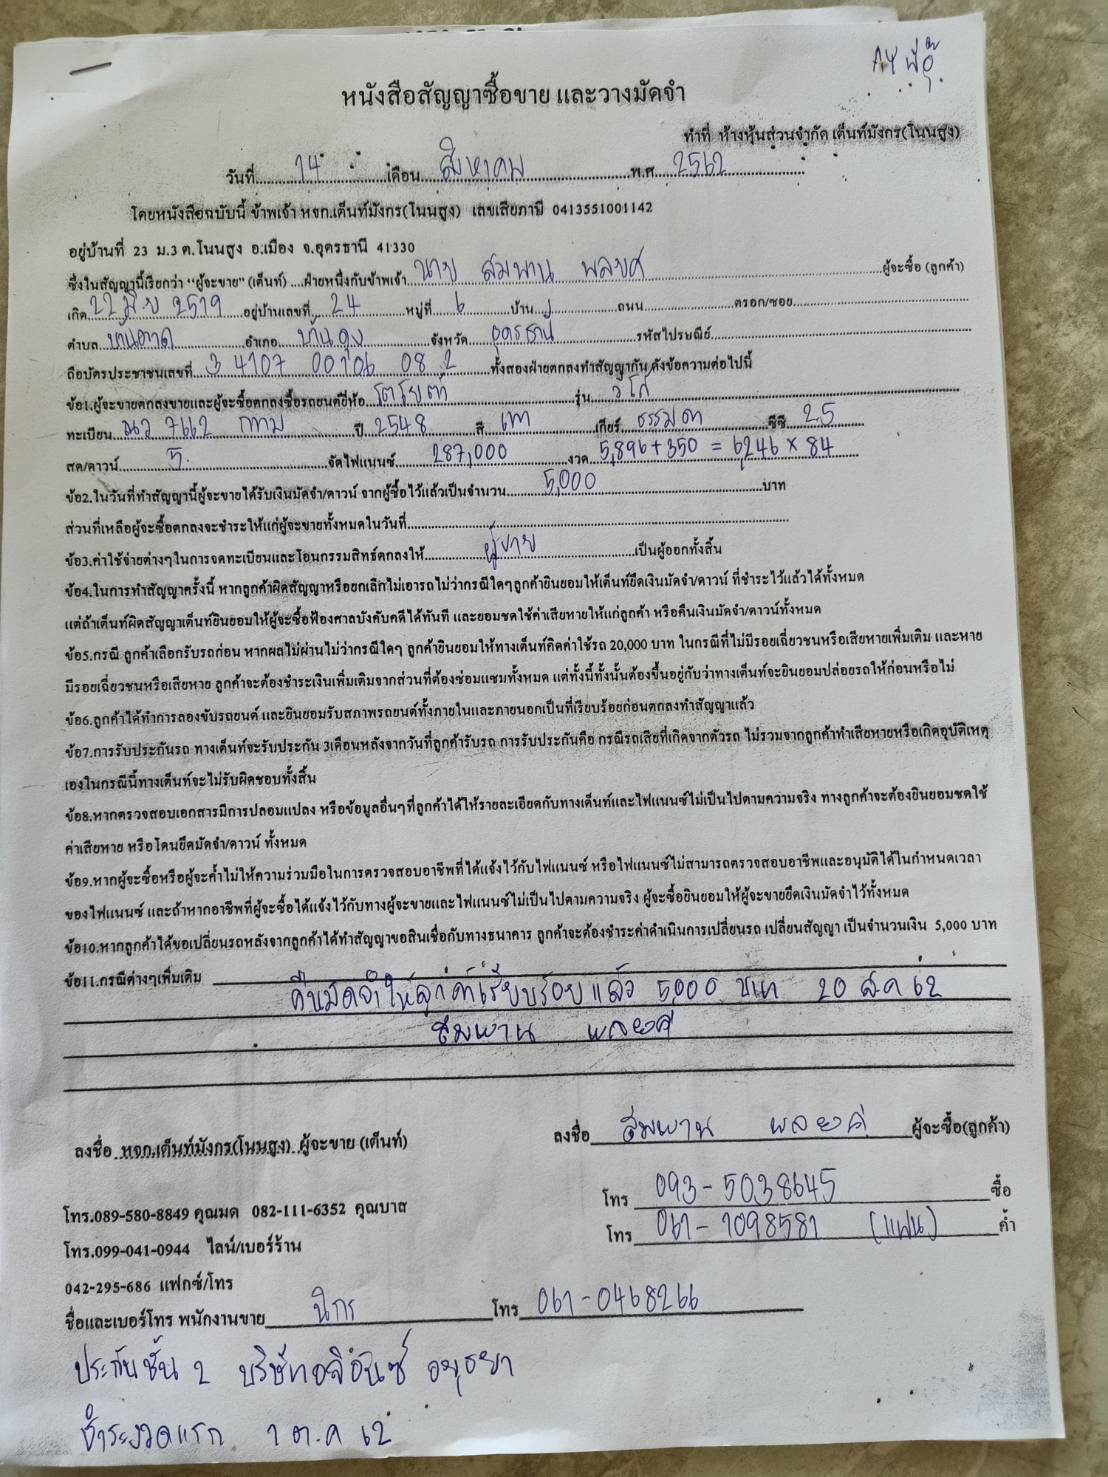 AY พี่อุ๊
หนังสือสัญญาซื้อขาย และวางมัดจำ
ทำที่ ห้างหุ้นส่วนจำกัด เต็นท์มังกร(โนนสูง)
วันที่ 14 เดือน สิงหาคม พ.ศ. 2562
โดยหนังสือฉบับนี้ ข้าพเจ้า หจก.เต็นท์มังกร(โนนสูง) เลขเสียภาษี 0413551001142
อยู่บ้านที่ 23 ม.3 ต.โนนสูง อ.เมือง จ.อุดรธานี 41330
ซึ่งในสัญญานี้เรียกว่า "ผู้จะขาย" (เต็นท์) ฝ่ายหนึ่งกับข้าพเจ้า นาย สมพาน พลยศ ผู้จะซื้อ (ลูกค้า)
เกิด 22 มิ.ย 2519 อยู่บ้านเลขที่ 24 หมู่ที่ 6 บ้าน ถนน ตรอก/ซอย
ตำบล บ้านตาด อำเภอ บ้านดุง จังหวัด อุดรธานี รหัสไปรษณีย์
ถือบัตรประชาชนเลขที่ 3 4107 00106 08 2 ทั้งสองฝ่ายตกลงทำสัญญากัน ดังข้อความต่อไปนี้
ข้อ1.ผู้จะขายตกลงขายและผู้จะซื้อตกลงซื้อรถยนต์ยี่ห้อ โตโยต้า รุ่น วีโก้
ทะเบียน 7662 กทม ปี 2548 สี เทา เกียร์ ธรรมดา ซีซี 2.5
สด/ดาวน์ 5. จัดไฟแนนซ์ 287,000 งวด 5,896+350 = 6,246 x 84
ข้อ2.ในวันที่ทำสัญญานี้ผู้จะขายได้รับเงินมัดจำ/ดาวน์ จากผู้ซื้อไว้แล้วเป็นจำนวน 5,000 บาท
ส่วนที่เหลือผู้จะซื้อตกลงจะชำระให้แก่ผู้จะขายทั้งหมดในวันที่
ข้อ3.ค่าใช้จ่ายต่างๆในการจดทะเบียนและโอนกรรมสิทธิ์ตกลงให้ ผู้ขาย เป็นผู้ออกทั้งสิ้น
ข้อ4.ในการทำสัญญาครั้งนี้ หากลูกค้าผิดสัญญาหรือยกเลิกไม่เอารถไม่ว่ากรณีใดๆลูกค้ายินยอมให้เต็นท์ยึดเงินมัดจำ/ดาวน์ ที่ชำระไว้แล้วได้ทั้งหมด
แต่ถ้าเต็นท์ผิดสัญญาเต็นท์ยินยอมให้ผู้จะซื้อฟ้องศาลบังคับคดีได้ทันที และยอมชดใช้ค่าเสียหายให้แก่ลูกค้า หรือคืนเงินมัดจำ/ดาวน์ทั้งหมด
ข้อ5.กรณี ลูกค้าเลือกรับรถก่อน หากผลไม่ผ่านไม่ว่ากรณีใดๆ ลูกค้ายินยอมให้ทางเต็นท์คิดค่าใช้รถ 20,000 บาท ในกรณีที่ไม่มีรอยเฉี่ยวชนหรือเสียหายเพิ่มเติม และหาย
มีรอยเฉี่ยวชนหรือเสียหาย ลูกค้าจะต้องชำระเงินเพิ่มเติมจากส่วนที่ต้องซ่อมแซมทั้งหมด แต่ทั้งนี้ทั้งนั้นต้องขึ้นอยู่กับว่าทางเต็นท์จะยินยอมปล่อยรถให้ก่อนหรือไม่
ข้อ6.ลูกค้าได้ทำการลองขับรถยนต์ และยินยอมรับสภาพรถยนต์ทั้งภายในและภายนอกเป็นที่เรียบร้อยก่อนตกลงทำสัญญาแล้ว
ข้อ7.การรับประกันรถ ทางเต็นท์จะรับประกัน 3เดือนหลังจากวันที่ลูกค้ารับรถ การรับประกันคือ กรณีรถเสียที่เกิดจากตัวรถ ไม่รวมจากลูกค้าทำเสียหายหรือเกิดอุบัติเหตุ
เองในกรณีนี้ทางเต็นท์จะไม่รับผิดชอบทั้งสิ้น
ข้อ8.หากตรวจสอบเอกสารมีการปลอมแปลง หรือข้อมูลอื่นๆที่ลูกค้าได้ให้รายละเอียดกับทางเต็นท์และไฟแนนซ์ไม่เป็นไปตามความจริง ทางลูกค้าจะต้องยินยอมชดใช้
ค่าเสียหาย หรือโดนยึดมัดจำ/ดาวน์ ทั้งหมด
ข้อ9.หากผู้จะซื้อหรือผู้จะค้ำไม่ให้ความร่วมมือในการตรวจสอบอาชีพที่ได้แจ้งไว้กับไฟแนนซ์ หรือไฟแนนซ์ไม่สามารถตรวจสอบอาชีพและอนุมัติได้ในกำหนดเวลา
ของไฟแนนซ์ และถ้าหากอาชีพที่ผู้จะซื้อได้แจ้งไว้กับทางผู้จะขายและไฟแนนซ์ไม่เป็นไปตามความจริง ผู้จะซื้อยินยอมให้ผู้จะขายยึดเงินมัดจำไว้ทั้งหมด
ข้อ10.หากลูกค้าได้ขอเปลี่ยนรถหลังจากลูกค้าได้ทำสัญญาขอสินเชื่อกับทางธนาคาร ลูกค้าจะต้องชำระค่าดำเนินการเปลี่ยนรถ เปลี่ยนสัญญา เป็นจำนวนเงิน 5,000 บาท
ข้อ11.กรณีต่างๆเพิ่มเติม
คืนมัดจำให้ลูกค้าเรียบร้อยแล้ว 5,000 บาท 20 ส.ค 62
สมพาน พลยศ
ลงชื่อ หจก.เต็นท์มังกร(โนนสูง) ผู้จะขาย (เต็นท์)
ลงชื่อ สมพาน พลยศ ผู้จะซื้อ(ลูกค้า)
โทร 093-5038645 ซื้อ
โทร.089-580-8849 คุณมด 082-111-6352 คุณบาส
โทร 061-1098581 (แฟน) ค้ำ
โทร.099-041-0944 ไลน์/เบอร์ร้าน
042-295-686 แฟกซ์/โทร
ชื่อและเบอร์โทร พนักงานขาย นิกร โทร 061-0468266
ประกันชั้น 2 บริษัทอลิอันซ์ อยุธยา
ชำระงวดแรก 1 ต.ค 62